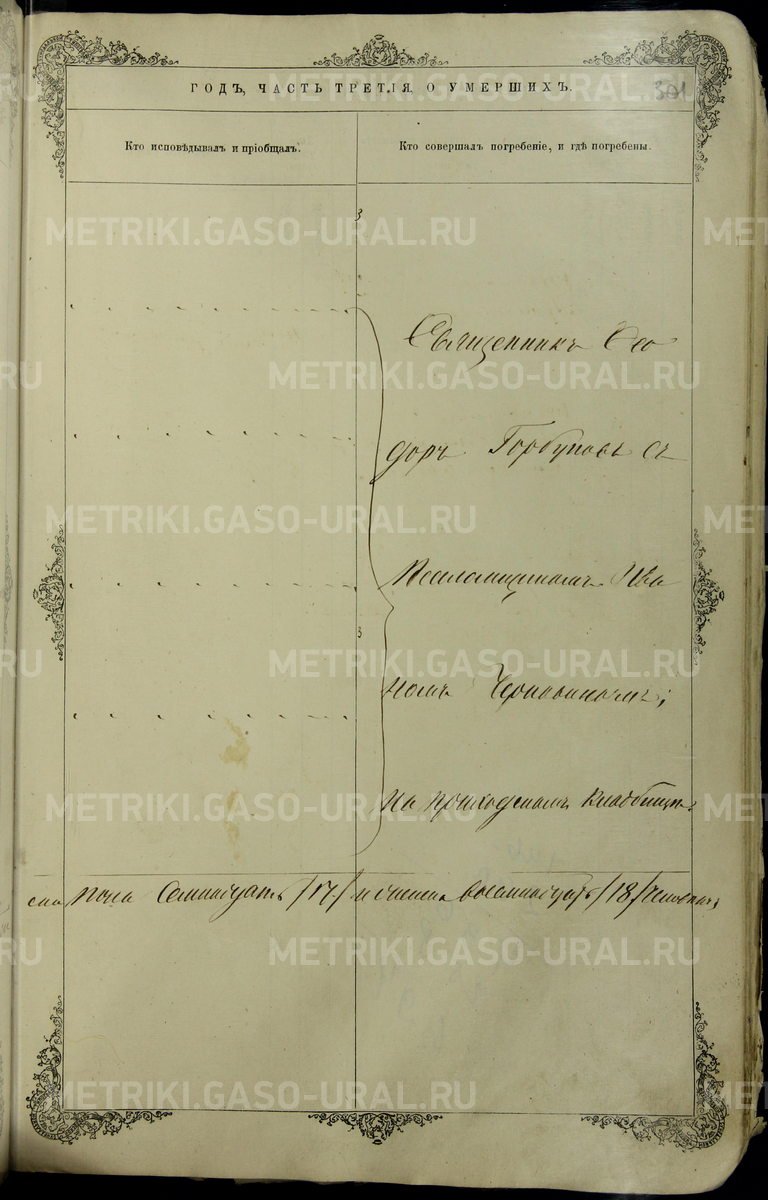 ГОДЪ, ЧАСТЬ ТРЕТІЯ. О УМЕРШИХЪ.
301
Кто исповѣдывалъ и пріобщалъ.
Кто совершалъ погребеніе, и гдѣ погребены.
Священникъ Ѳео
доръ Горбуновъ съ
Псаломщикомъ Ива
номъ
на приходскомъ кладбищѣ.
пола Семнадцать /17/ и женска восемнадцать /18/ человѣкъ;
METRIKI.GASO-URAL.RU